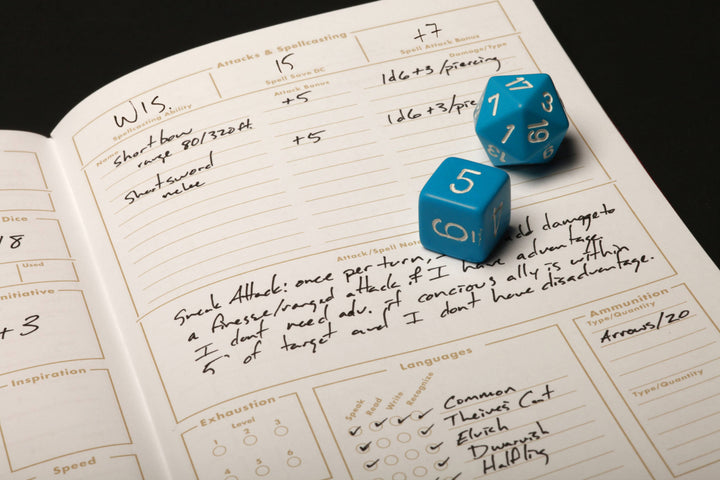 Attacks & Spellcasting
WIS.
15
+7
Spellcasting Ability
Spell Save DC
Spell Attack Bonus
Name
Attack Bonus
Damage/Type
Shortbow
range 80/320ft.
+5
1d6+3/piercing
Shortsword
melee
+5
1d6+3/pie
Attack/Spell Not
Sneak Attack: once per turn, add damage to
a finesse/ranged attack if I have advantage.
I dont need adv. if concious ally is within
5' of target and I dont have disadvantage.
Dice
8
Used
nitiative
+3
Inspiration
Speed
Exhaustion
Level
1 2 3
4 5 6
Languages
Speak
Read
Write
Recognize
Common
Theives Cant
Elvish
Dwarvish
Halfling
Ammunition
Type/Quantity
Arrows/20
Type/Quantity
17
1
3
1
19
13
9
5
6